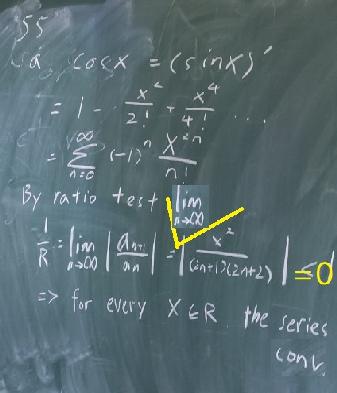 55
a. cosx = (sinx)'
= 1 - x²/2! + x⁴/4! ...
= ∑_{n=0}^{∞} (-1)ⁿ x²ⁿ/n!
By ratio test lim_{n→∞}
1/R = lim_{n→∞} |a_{n+1}/a_n| = |x²/(2n+1)(2n+2)| = 0
=> for every x ∈ R, the series
conv.